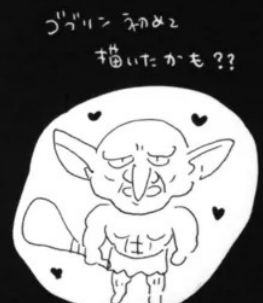 ゴブリン 初めて
描いたかも??